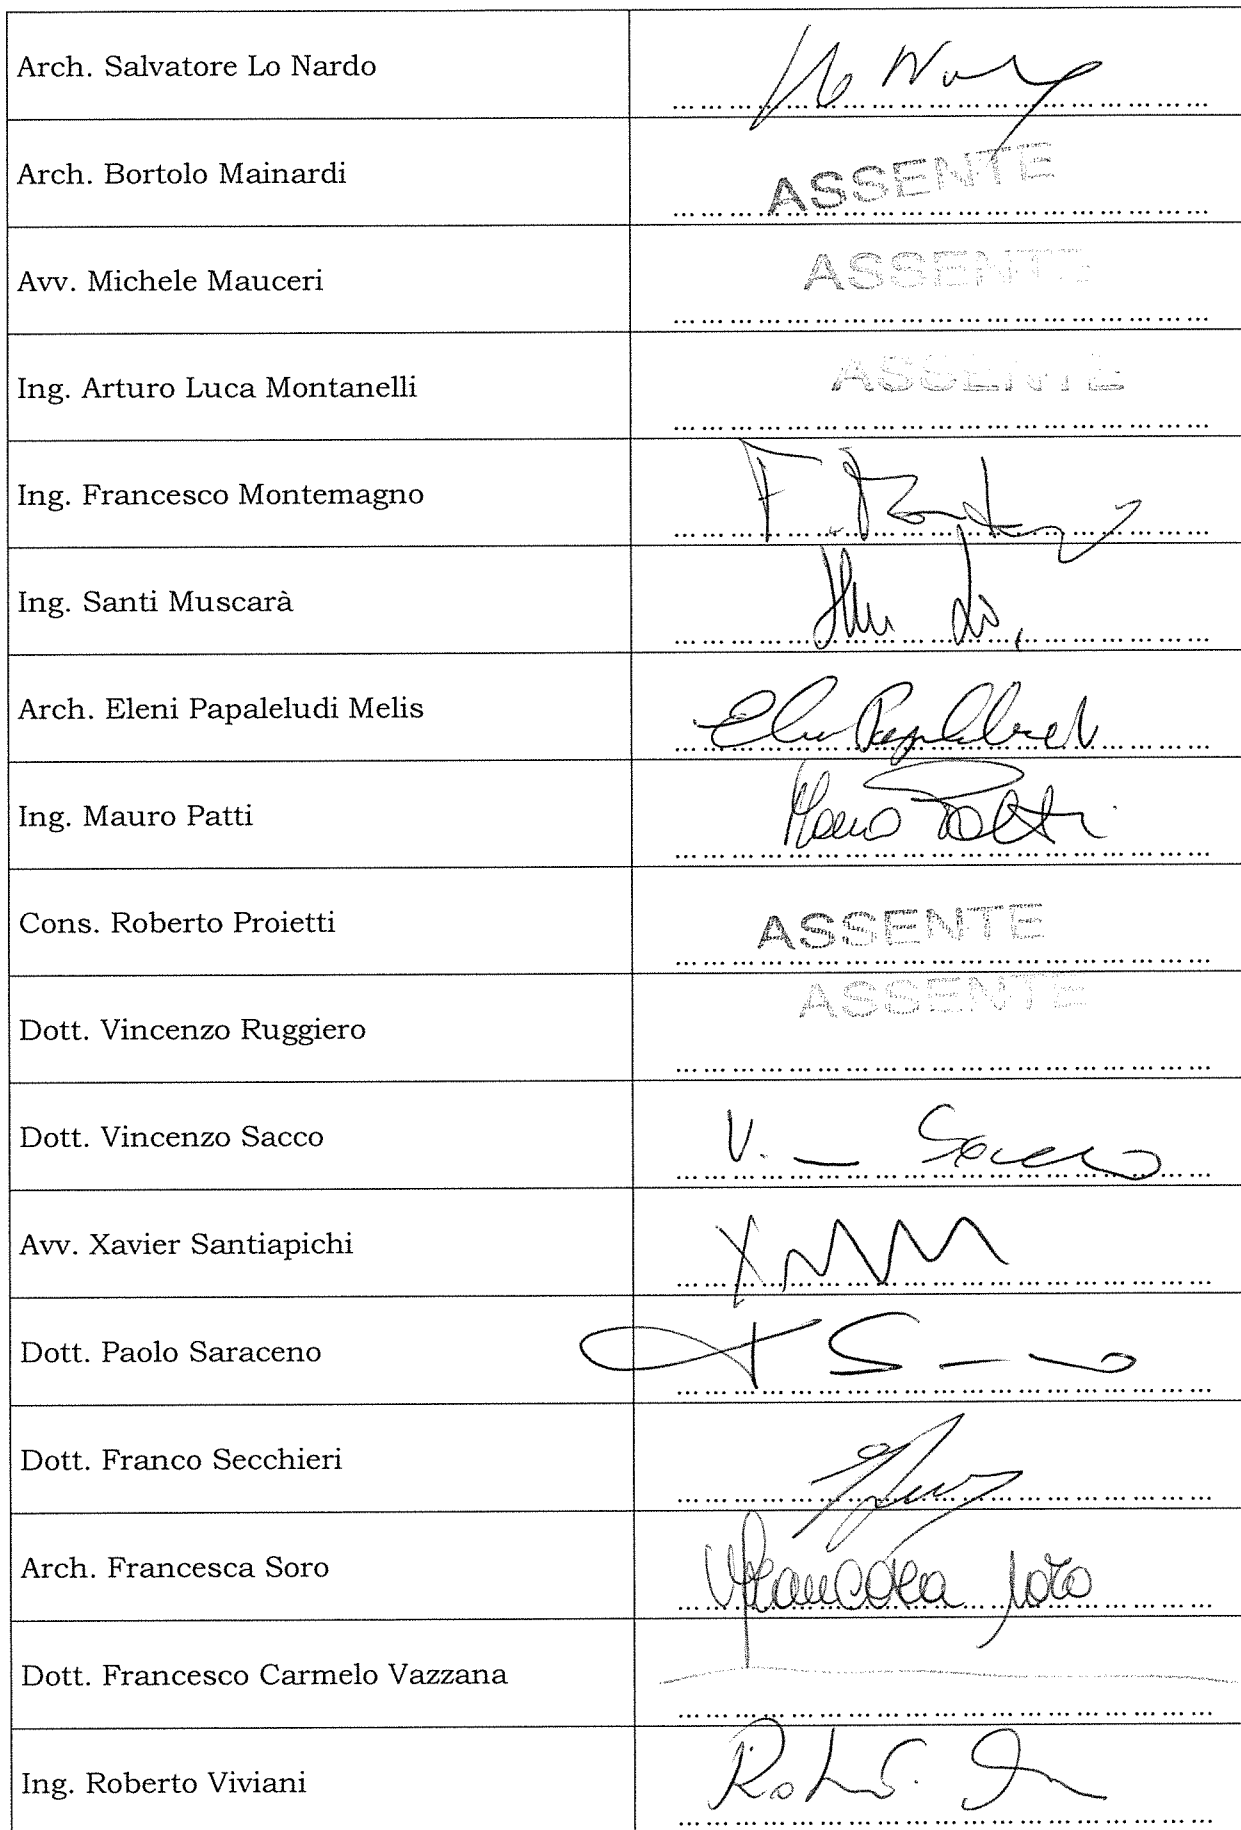 Arch. Salvatore Lo Nardo
Arch. Bortolo Mainardi ASSENTE
Avv. Michele Mauceri ASSENTE
Ing. Arturo Luca Montanelli ASSENTE
Ing. Francesco Montemagno
Ing. Santi Muscarà
Arch. Eleni Papaleludi Melis
Ing. Mauro Patti Mauro Patti
Cons. Roberto Proietti ASSENTE
Dott. Vincenzo Ruggiero ASSENTE
Dott. Vincenzo Sacco V. Sacco
Avv. Xavier Santiapichi
Dott. Paolo Saraceno
Dott. Franco Secchieri
Arch. Francesca Soro Francesca Soro
Dott. Francesco Carmelo Vazzana
Ing. Roberto Viviani